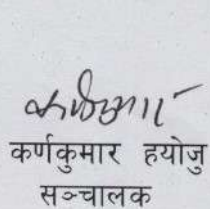 कर्णकुमार हयोजु
सञ्चालक